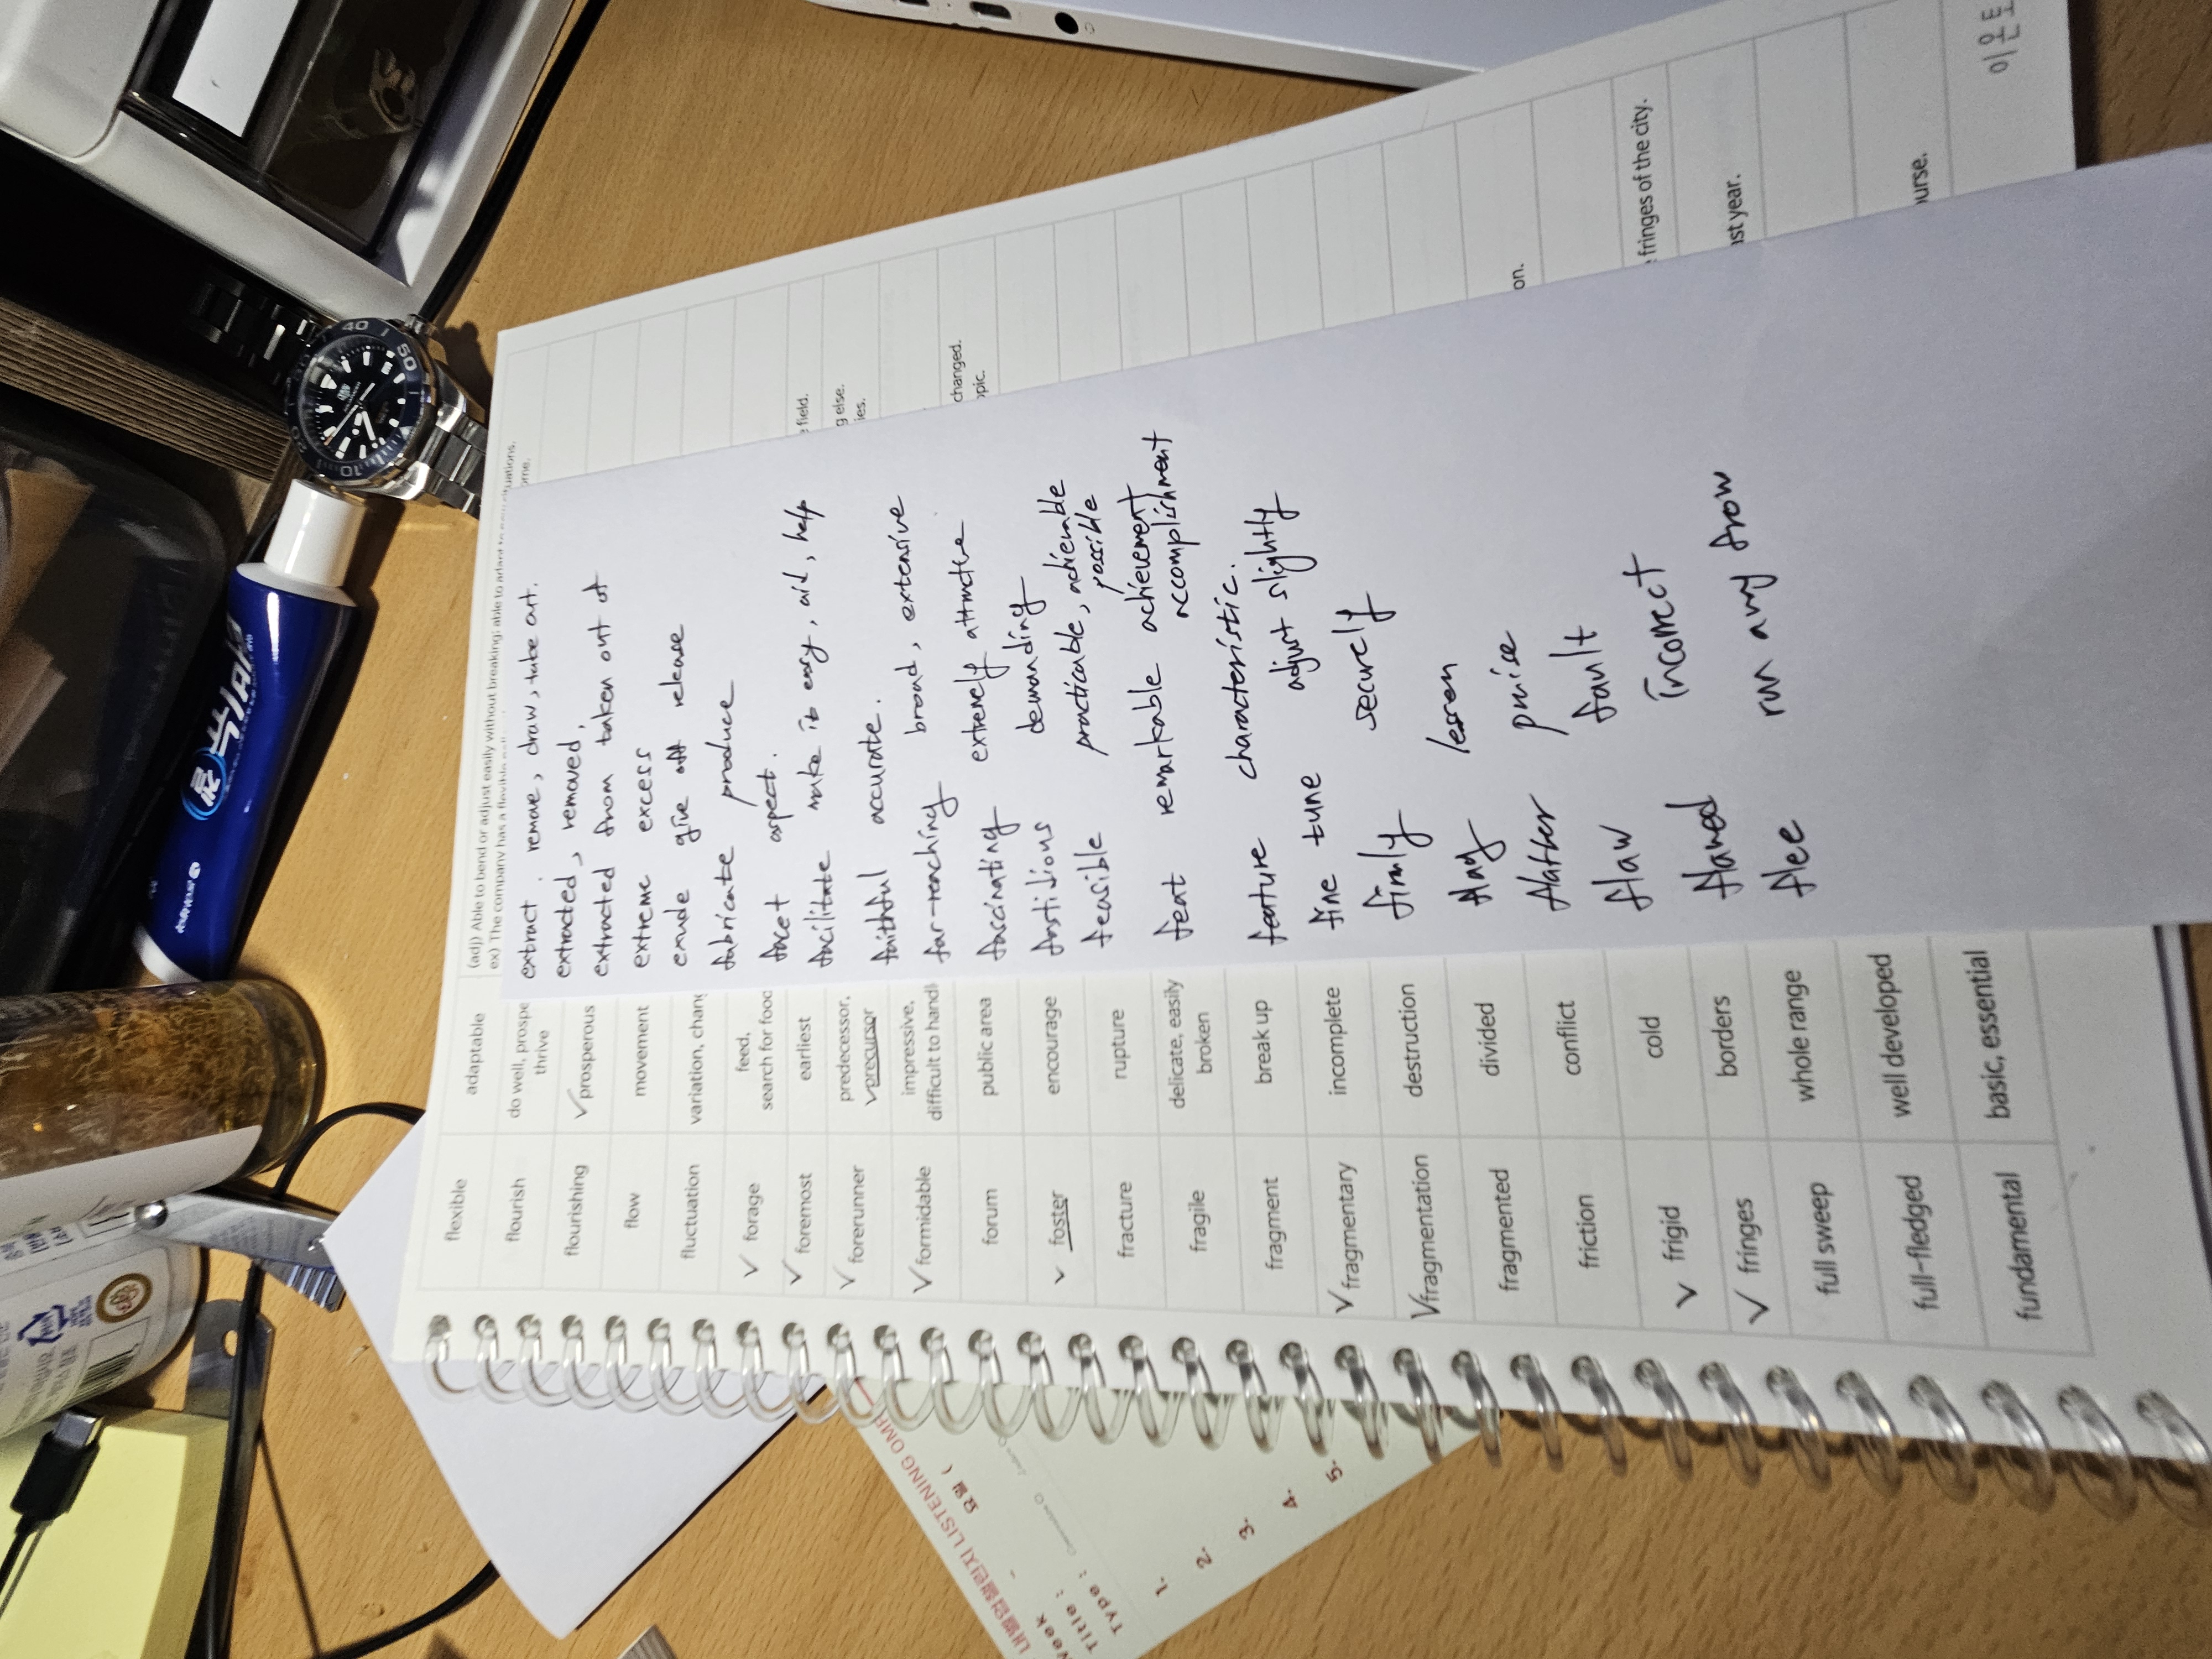 (adj) Able to bend or adjust easily without breaking; able to adapt to new situations.
ex) The company has a flexible
flexible adaptable
flourish do well, prospe
thrive
flourishing ✓prosperous
flow movement
fluctuation variation, chang
✓ forage feed,
search for food
✓ foremost earliest
✓ forerunner predecessor,
✓precursor
✓ formidable impressive,
difficult to handl
forum public area
✓ foster encourage
fracture rupture
fragile delicate, easily
broken
fragment break up
✓ fragmentary incomplete
✓ fragmentation destruction
fragmented divided
friction conflict
✓ frigid cold
✓ fringes borders
full sweep whole range
full-fledged well developed
fundamental basic, essential
extract . remove, draw, take out.
extracted, removed,
extracted from taken out of
extreme excess
exude give off release
fabricate produce
facet aspect.
facilitate make it easy, aid, help
faithful accurate.
far-reaching broad, extensive
fascinating extremely attractive
fastidious demanding
feasible practicable, achievable
possible
feat remarkable achievement
accomplishment
feature characteristic.
fine tune adjust slightly
firmly securely
flag lessen
flatter praise
flaw fault
flawed incorrect
flee run away from
field.
g else.
ies.
changed.
opic.
on.
fringes of the city.
ast year.
urse.
이온토
40
50
10
내벨업챌린지 LISTENING OMR
요일 (
Week
Title :
Type :
1.
2.
3.
4.
5.